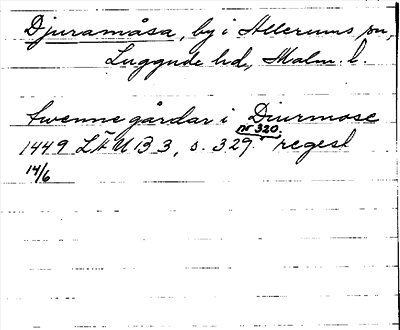 Djuramåsa, by i Allerums sn,
Luggude hd, Malm. l.
twenne gårdar i Diurmose
nr 320.
1449 LÄUB 3, s. 329. regest
14/6